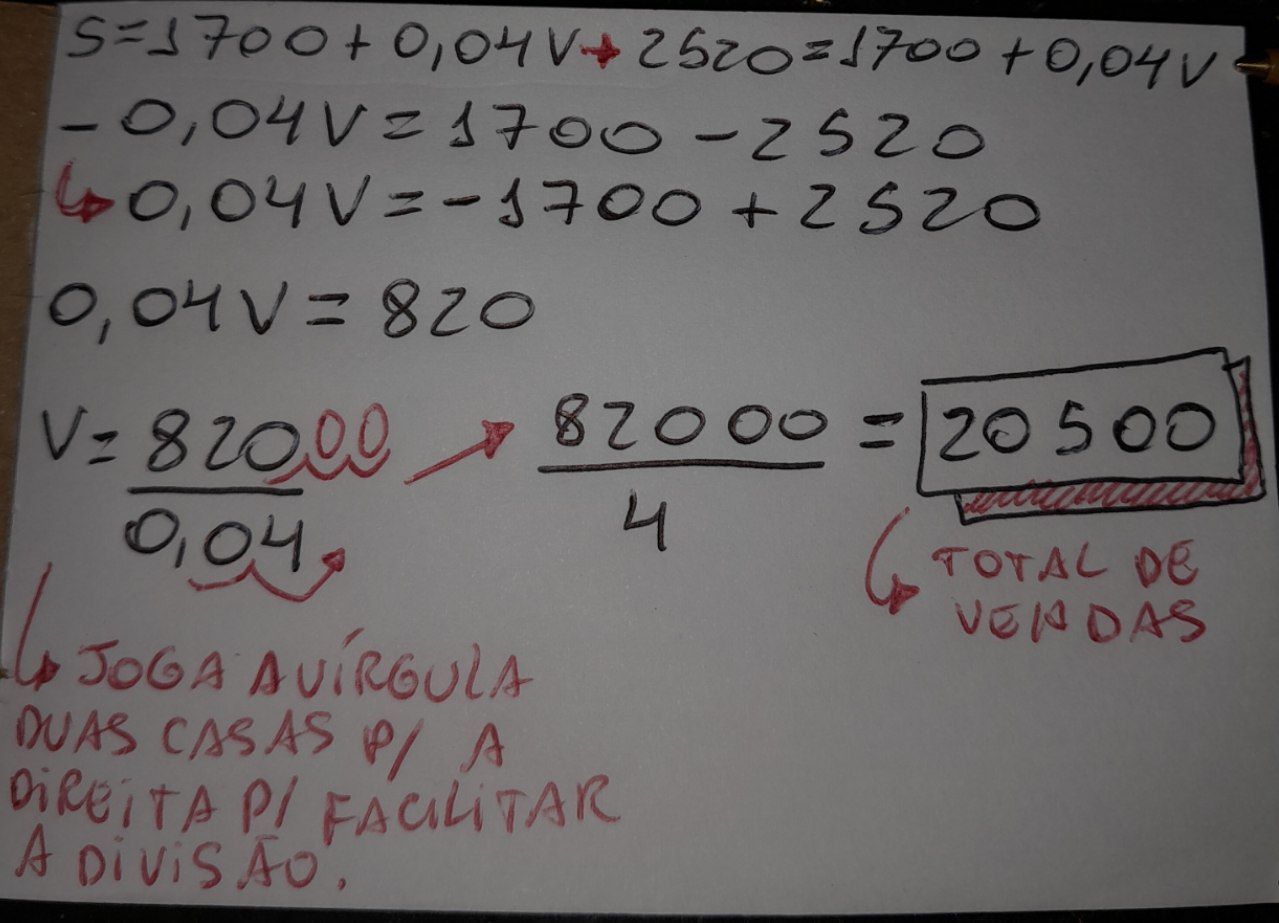 S=1700+0,04V→2520=1700+0,04V
-0,04V=1700-2520
↳0,04V=-1700+2520
0,04V=820
V=82000/0,04 → 82000/4 = 20500
↳ TOTAL DE
VENDAS
↳ JOGA A VÍRGULA
DUAS CASAS P/ A
DIREITA P/ FACILITAR
A DIVISÃO.